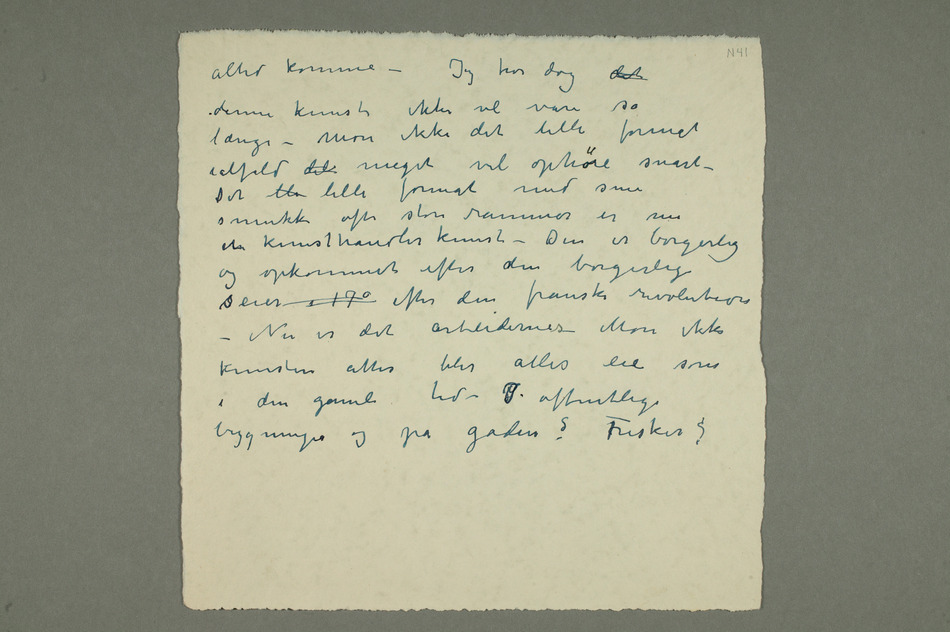 N41
altid komme – Jeg tror dog det
denne kunst ikke vil vare så
længe – Mon ikke det lille format
ialfeld det meget vel ophöre snart –
Det lille format med sine
smukke ofte store rammer er nu
en kunsthandler kunst – Den er borgerlig
og opkommet efter den borgerlige
Seier i 17⁰ efter den franske revolution
– Nu er det arbeidernes – Mon ikke
kunsten atter blir alles eie som
i den gamle tid – I offentlige
bygninger og på gaden? Fresker?